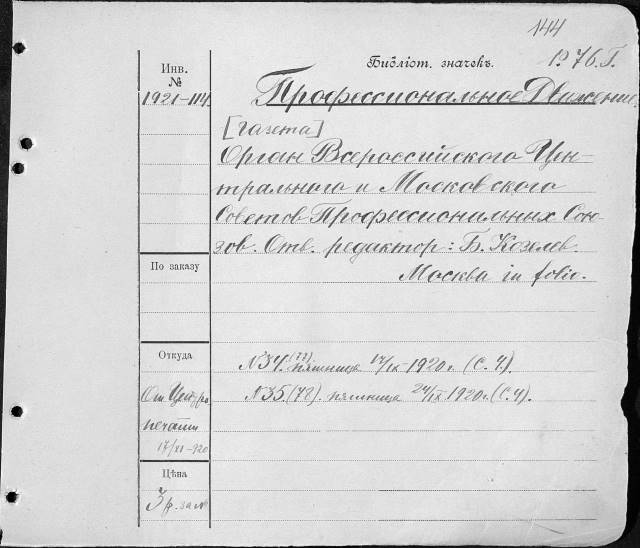 144
Библіот. значекъ.
Инв.
№
1921-114
Профессиональное Движение.
[газета]
Орган Всероссийского Цен-
трального и Московского
Советов Профессиональных Сою-
зов. Отв. редактор: Б. Козелев.
Москва in folio.
По заказу
Откуда
От Центр.
печати
17/XI-920
N34.(77). пятница 17/IX-1920г. (С. 4).
N35.(78). пятница 24/IX 1920г. (С. 4).
Цѣна
3 р. за №